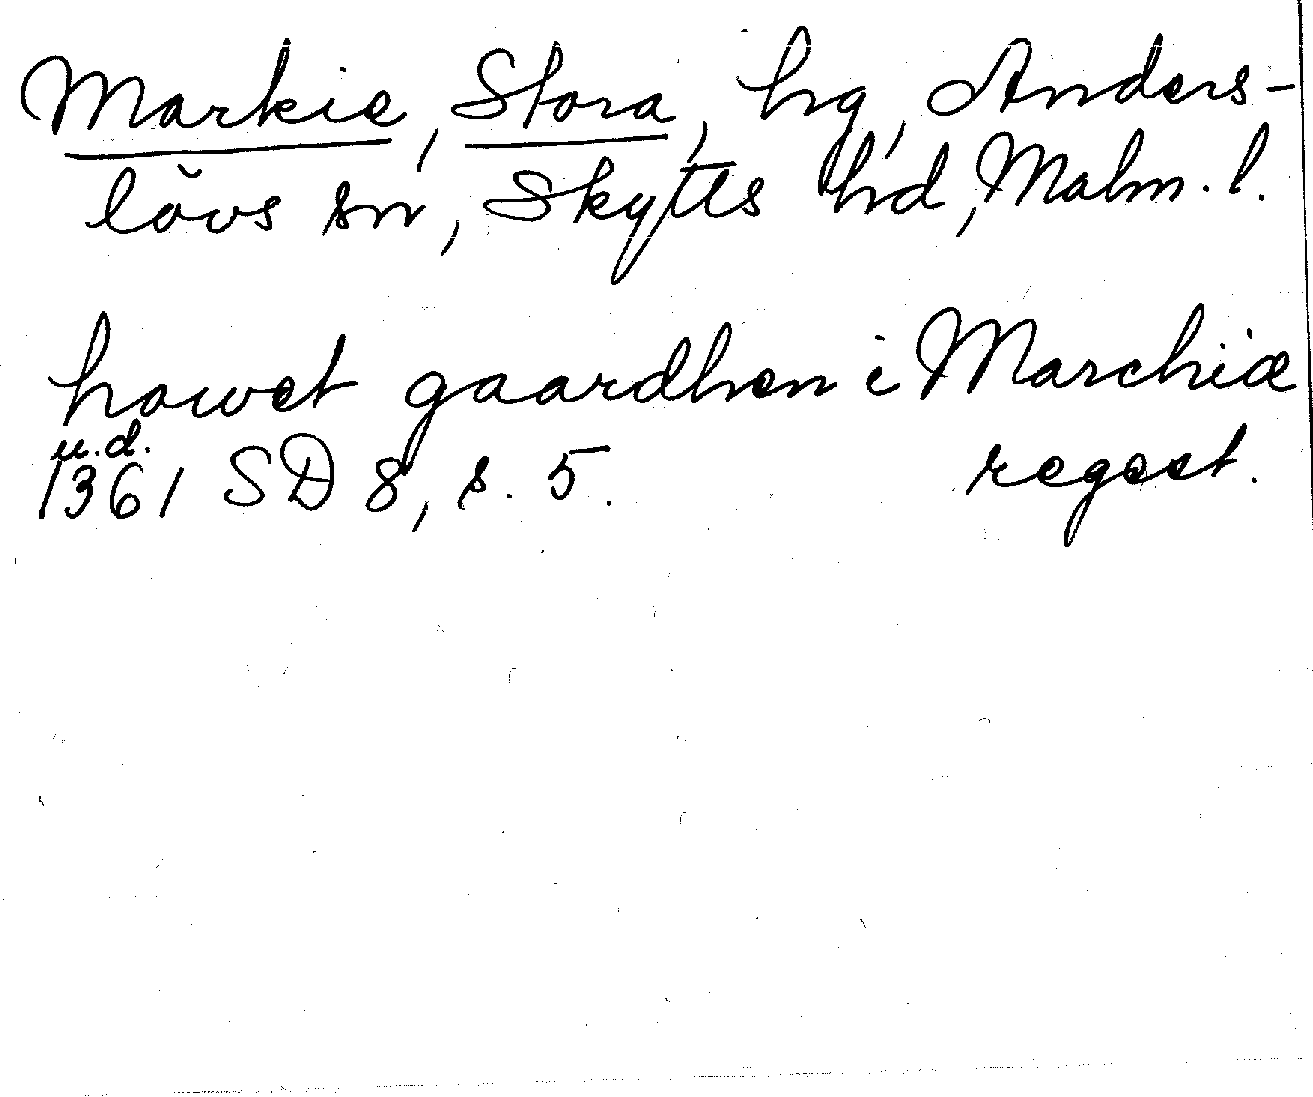 Markie, Stora, hg, Anders-
lövs sn, Skytts hd, Malm. l.
howet gaardhen i Marchiæ
u.d.
1361 SD 8, s. 5. regest.